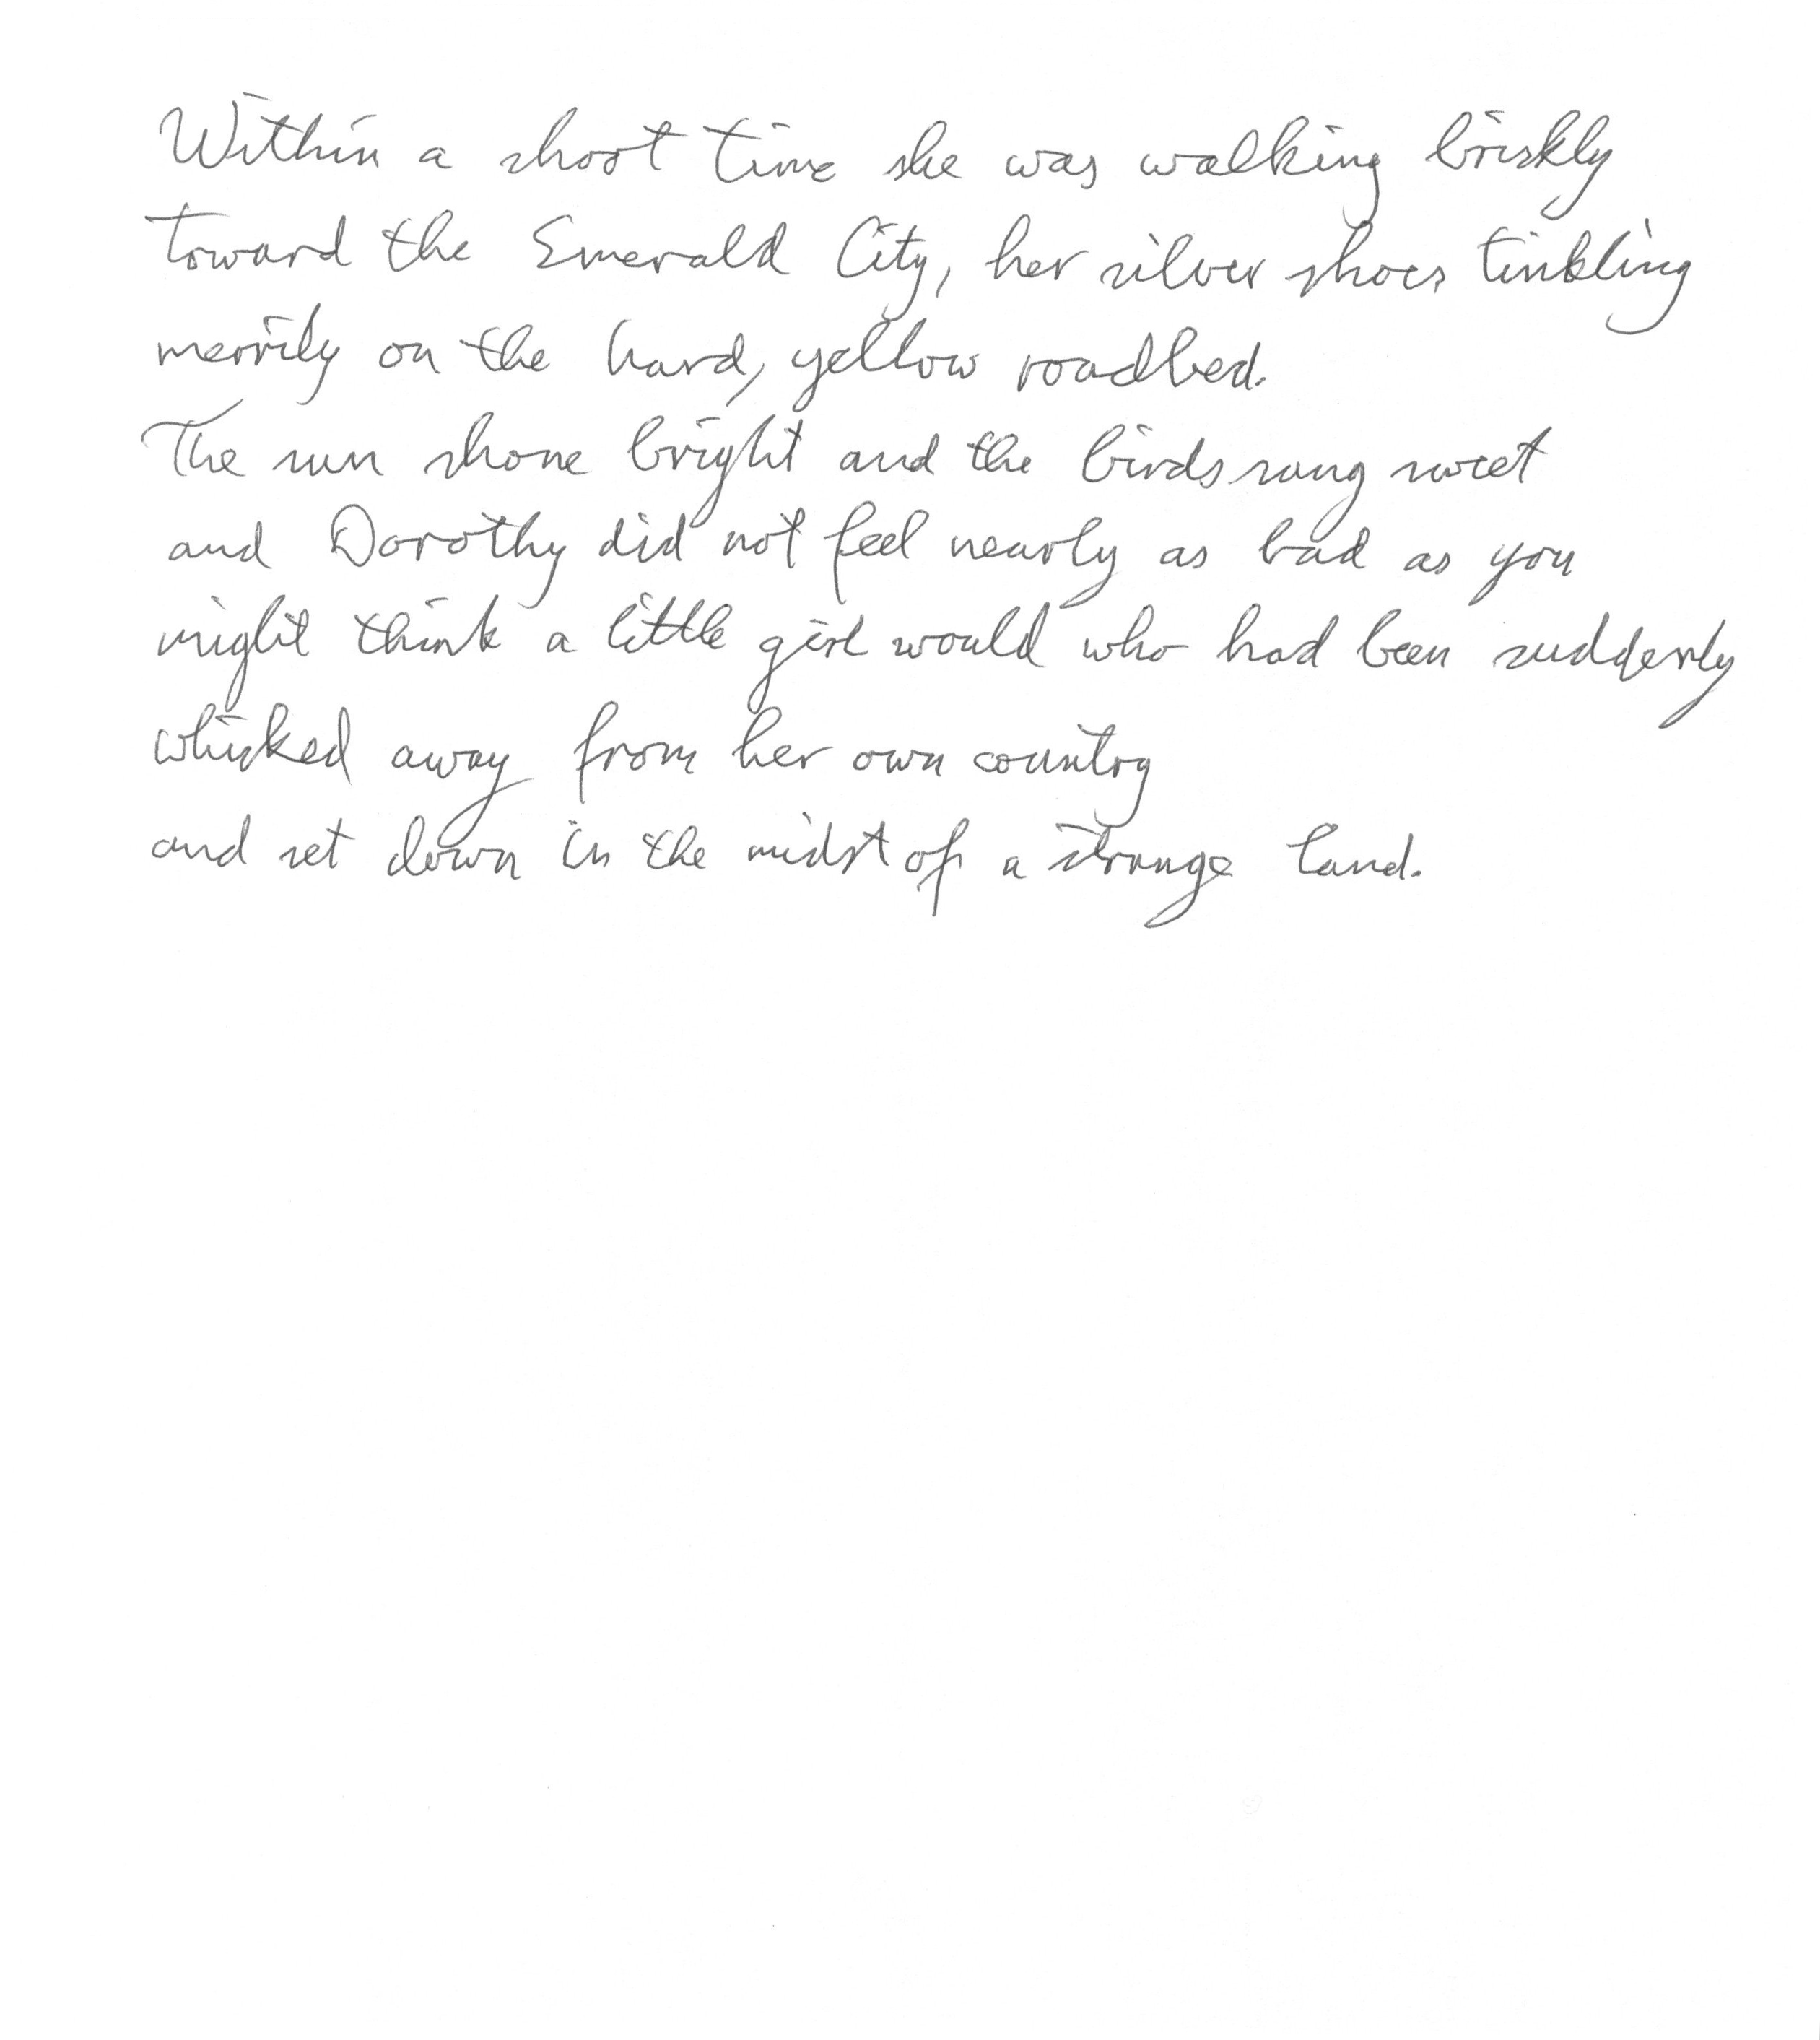 Within a short time she was walking briskly
toward the Emerald City, her silver shoes tinkling
merrily on the hard, yellow roadbed.
The sun shone bright and the birds sang sweet
and Dorothy did not feel nearly as bad as you
might think a little girl would who had been suddenly
whisked away from her own country
and set down in the midst of a strange land.